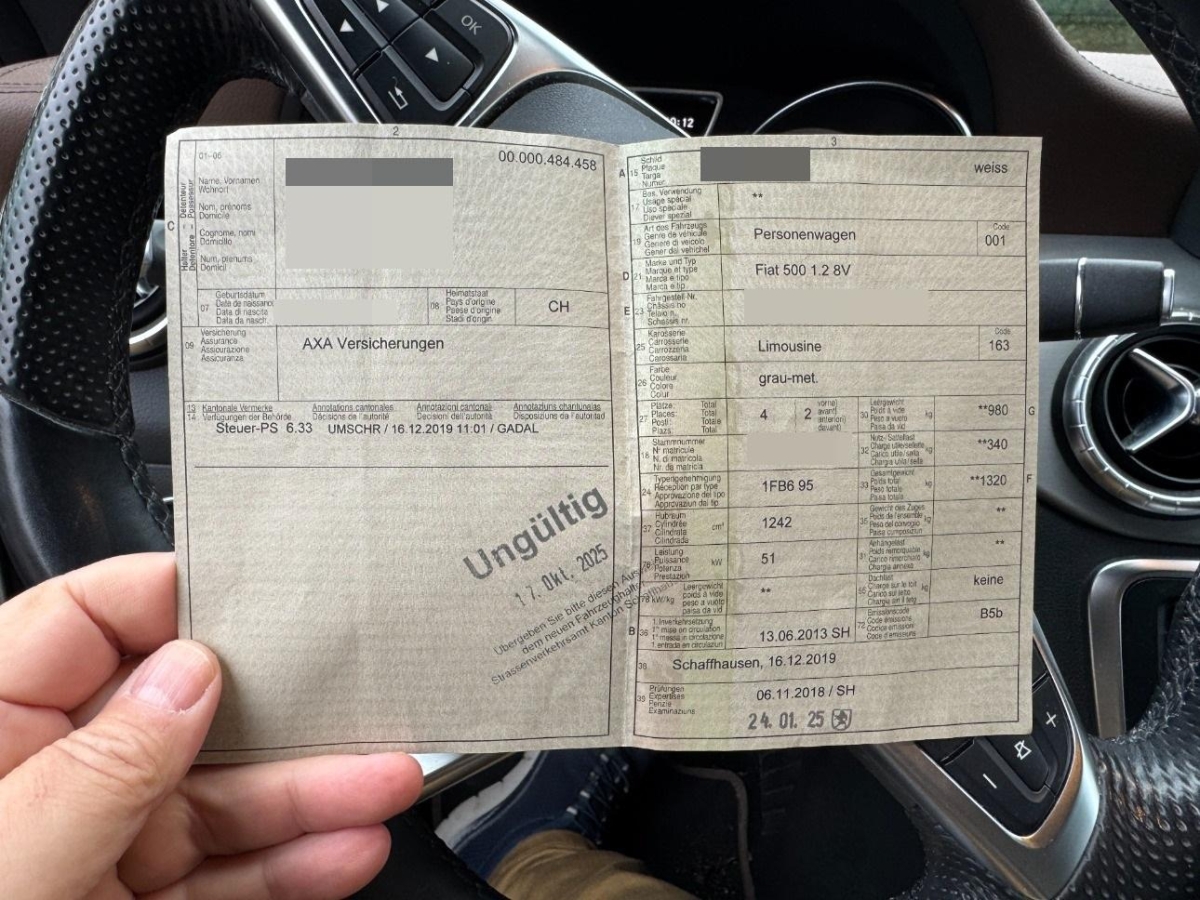 OK
0:12
2
01-05
00.000.484.458
C
Halter - Détenteur
Detentore - Possessur
Name, Vornamen
Wohnort
Nom, prénoms
Domicile
Cognome, nomi
Domicilio
Num, prenums
Domicil
07
Geburtsdatum
Date de naissance
Data di nascita
Data da nasch.
08
Heimatstaat
Pays d'origine
Paese d'origine
Stadi d'origin
CH
09
Versicherung
Assurance
Assicurazione
Assicuranza
AXA Versicherungen
13
14
Kantonale Vermerke
Verfügungen der Behörde
Annotations cantonales
Décisions de l'autorité
Annotazioni cantonali
Decisioni dell'autorità
Annotaziuns chantunalas
Disposiziuns da l'autoritad
Steuer-PS 6.33 UMSCHR / 16.12.2019 11:01 / GADAL
Ungültig
17. Okt. 2025
Übergeben Sie bitte diesen Ausw
dem neuen Fahrzeughalte
Strassenverkehrsamt Kanton Schaffhause
3
A 15
Schild
Plaque
Targa
Numer
weiss
17
Bes. Verwendung
Usage spécial
Uso speciale
Diever spezial
**
19
Art des Fahrzeugs
Genre de véhicule
Genere di veicolo
Gener dal vehichel
Personenwagen
Code
001
D 21
Marke und Typ
Marque et type
Marca e tipo
Marca e tip
Fiat 500 1.2 8V
E 23
Fahrgestell-Nr.
Châssis no
Telaio n.
Schassis nr.
25
Karosserie
Carrosserie
Carrozzeria
Carossaria
Limousine
Code
163
26
Farbe
Couleur
Colore
Colur
grau-met.
27
Plätze: Total
Places: Total
Posti: Totale
Plazs: Total
4
2
vorne)
avant)
anteriori)
davant)
30
Leergewicht
Poids à vide
Peso a vuoto
Paisa da vid
kg
**980
G
18
Stammnummer
N° matricule
N. di matricola
Nr. da matricla
32
Nutz-/Sattellast
Charge utile/sellette
Carico utile/sella
Chargia utila/sella
kg
**340
24
Typengenehmigung
Réception par type
Approvazione del tipo
Approvaziun dal tip
1FB6 95
33
Gesamtgewicht
Poids total
Peso totale
Paisa totala
kg
**1320
F
37
Hubraum
Cylindrée
Cilindrata
Cilindrada
cm³
1242
35
Gewicht des Zuges
Poids de l'ensemble
Peso del convoglio
Paisa cumposiziun
kg
**
76
Leistung
Puissance
Potenza
Prestaziun
kW
51
31
Anhängelast
Poids remorquable
Carico rimorchiato
Chargia annexa
kg
**
78 kW/kg
Leergewicht
poids à vide
peso a vuoto
paisa da vid
**
55
Dachlast
Charge sur le toit
Carico sul tetto
Chargia sin il tetg
kg
keine
B 36
1. Inverkehrsetzung
1re mise en circulation
1a messa in circolazione
1. entrada en circulaziun
13.06.2013 SH
72
Emissionscode
Code émissions
Codice emissioni
Code d'emissiuns
B5b
38
Schaffhausen, 16.12.2019
39
Prüfungen
Expertises
Perizie
Examinaziuns
06.11.2018 / SH
24. 01. 25